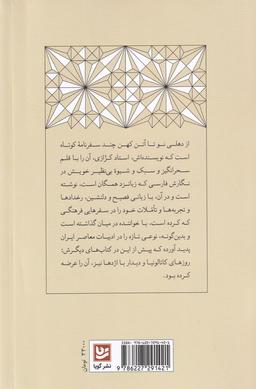 از دهلی نو تا آتن کهن چند سفرنامهٔ کوتاه
است که نویسنده‌اش، استاد کزّازی، آن را با قلم
سحرانگیز و سبک و شیوهٔ بی‌نظیر خویش در
نگارش فارسی که زبانزد همگان است، نوشته
است و در آن، با زبانی فصیح و دلنشین، رخدادها
و تجربه‌ها و تأملات خود را در سفرهایی فرهنگی
که کرده است، با خواننده در میان گذاشته است
و بدین‌گونه، نوعی تازه را در ادبیات معاصر ایران
پدید آورده که پیش از این در کتاب‌های دیگرش:
روزهای کاتالونیا و دیدار با اژدها نیز، آن را عرضه
کرده بود.
9 786227 291421
نشر گویا
تومان